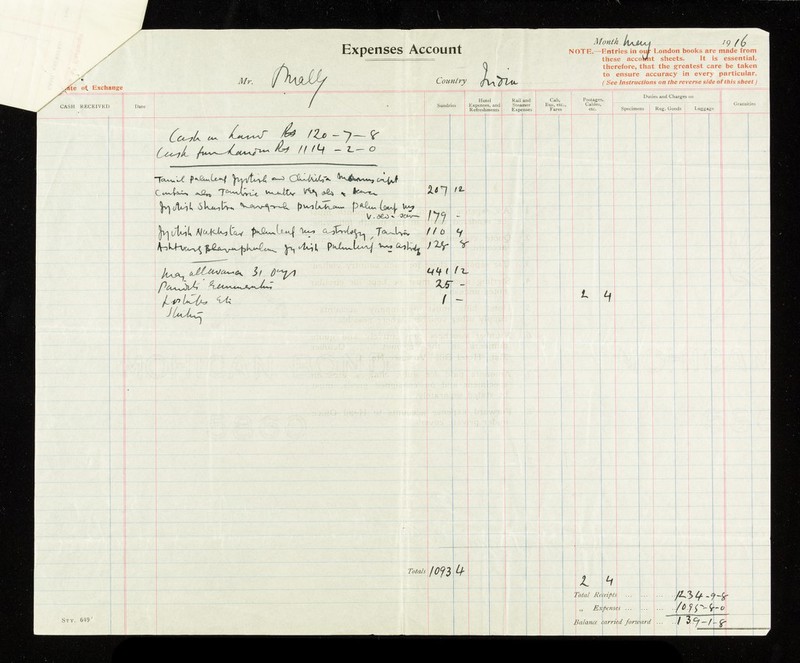 Expenses Account
Month May 1916
NOTE.—Entries in our London books are made from
these account sheets. It is essential,
therefore, that the greatest care be taken
to ensure accuracy in every particular.
(See Instructions on the reverse side of this sheet)
Rate of Exchange
Mr. Mally
Country India
CASH RECEIVED
Date
Sundries
Hotel Expenses, and Refreshments
Rail and Steamer Expenses
Cab, Bus, etc., Fares
Postages, Cables, etc.
Duties and Charges on
Specimens
Reg. Goods
Luggage
Gratuities
Cash in hand Rs 120-7-8
Cash from London Rs 1114-2-0
Tamil palmleaf Jyotish and Chikitsa Manuscript
Contains also Tantric matter very old & rare 207 12
Jyotish Shastra palm leaf ms
v. old & 179 -
Jyotish Nakhstar palmleaf ms astrology, 110 4
Jyotish Palmleaf ms astrology 128 8
May allowance 31 days 441 12
25 -
Postates Etc 1 - 2 4
Totals 1093 4
2 4
Total Receipts 1234-9-8
„ Expenses 1095-8-0
Balance carried forward 139-1-8